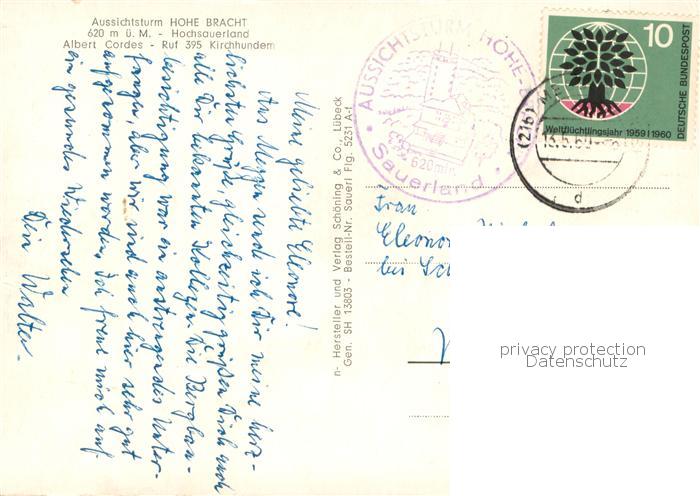 Aussichtsturm HOHE BRACHT
620 m ü. M. - Hochsauerland
Albert Cordes - Ruf 395 Kirchhundem
Meine geliebte Eleonore!
Aus Meggen sende ich Dir meine herz-
lichsten Grüße, gleichzeitig grüßen Dich auch
alle Dir bekannten Kollegen. Die Bergbau-
besichtigung war ein anstrengendes Unter-
fangen, aber wir sind auch hier sehr gut
aufgenommen worden. Ich freue mich auf
ein gesundes Wiedersehen
Dein Walter.
n- Hersteller und Verlag Schöning & Co., Lübeck
Gen. SH 13803 - Bestell-Nr. Sauerl Flg. 5231 A-t
AUSSICHTSTURM HOHE-
620 m
Sauerland
10
DEUTSCHE BUNDESPOST
Weltflüchtlingsjahr 1959 1960
(21b)
d
Frau
Eleonor
bei Sch
privacy protection
Datenschutz